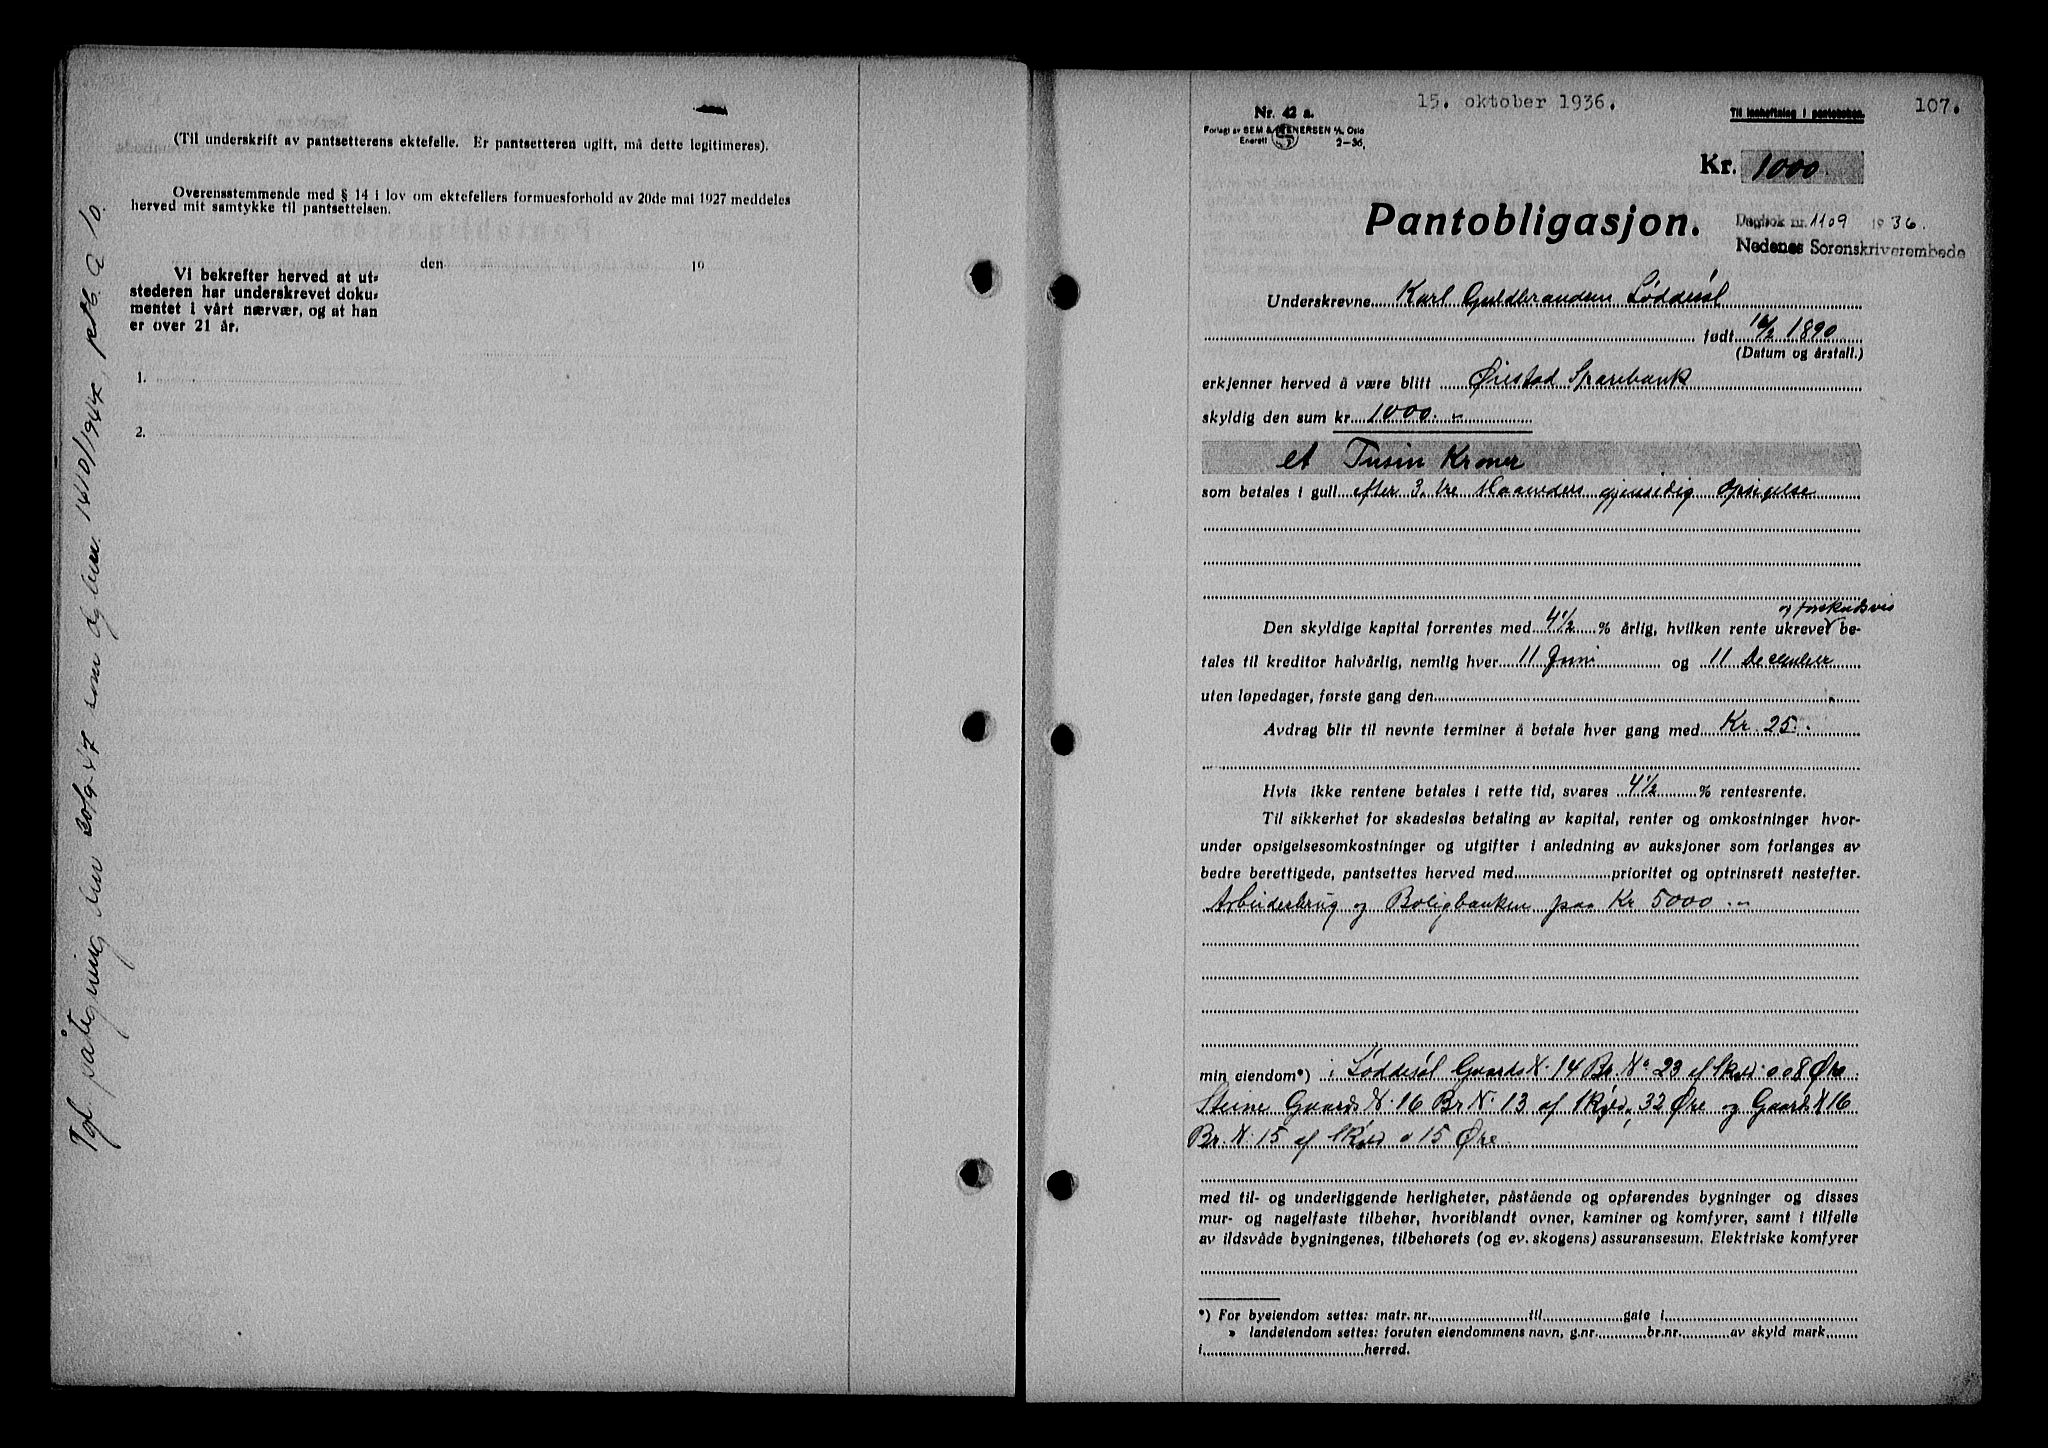 (Til underskrift av pantsetterens ektefelle. Er pantsetteren ugift, må dette legitimeres).
Overensstemmende med § 14 i lov om ektefellers formuesforhold av 20de mai 1927 meddeles
herved mit samtykke til pantsettelsen.
den 19
Vi bekrefter herved at ut-
stederen har underskrevet doku-
mentet i vårt nærvær, og at han
er over 21 år.
1.
2.
Tgl. påtegning den 30/9-47 som dagbem. 1410/1947, ptb. a 10.
15. oktober 1936.
107.
Nr. 42 a.
Forlagt av SEM & STENERSEN A/S, Oslo
Enerett 2-36.
Til innheftning i panteboken.
Kr. 1000.
Pantobligasjon.
Dagbok nr. 1109 1936.
Nedenes Sorenskriverembede
Underskrevne Karl Guldbrandsen Løddesøl
født 16/2 1890
(Datum og årstall.)
erkjenner herved å være blitt Øiestad Sparebank
skyldig den sum kr 1000.-
et Tusin Kroner
som betales i gull efter 3. tre Maaneders gjensidig Opsigelse
og forskudsvis
Den skyldige kapital forrentes med 4½ % årlig, hvilken rente ukrevet be-
tales til kreditor halvårlig, nemlig hver 11 Juni og 11 December
uten løpedager, første gang den
Avdrag blir til nevnte terminer å betale hver gang med Kr 25.
Hvis ikke rentene betales i rette tid, svares 4½ % rentesrente.
Til sikkerhet for skadesløs betaling av kapital, renter og omkostninger hvor-
under opsigelsesomkostninger og utgifter i anledning av auksjoner som forlanges av
bedre berettigede, pantsettes herved med prioritet og optrinsrett nestefter.
Arbeiderbrug og Boligbanken paa Kr 5000.-
min eiendom*) i Løddesøl Gaards N. 14 Br. No 23 af Skyld 0 08 Øre
Steine Gaards N. 16 Br N. 13 af Skyld, 32 Øre og Gaards N 16
Br. N. 15 af Skyld 0 15 Øre
med til- og underliggende herligheter, påstående og opførendes bygninger og disses
mur- og nagelfaste tilbehør, hvoriblandt ovner, kaminer og komfyrer, samt i tilfelle
av ildsvåde bygningenes, tilbehørets (og ev. skogens) assuransesum. Elektriske komfyrer
*) For byeiendom settes: matr. nr. til gate i
» landeiendom settes: foruten eiendommens navn, g.nr. br.nr. av skyld mark
i herred.